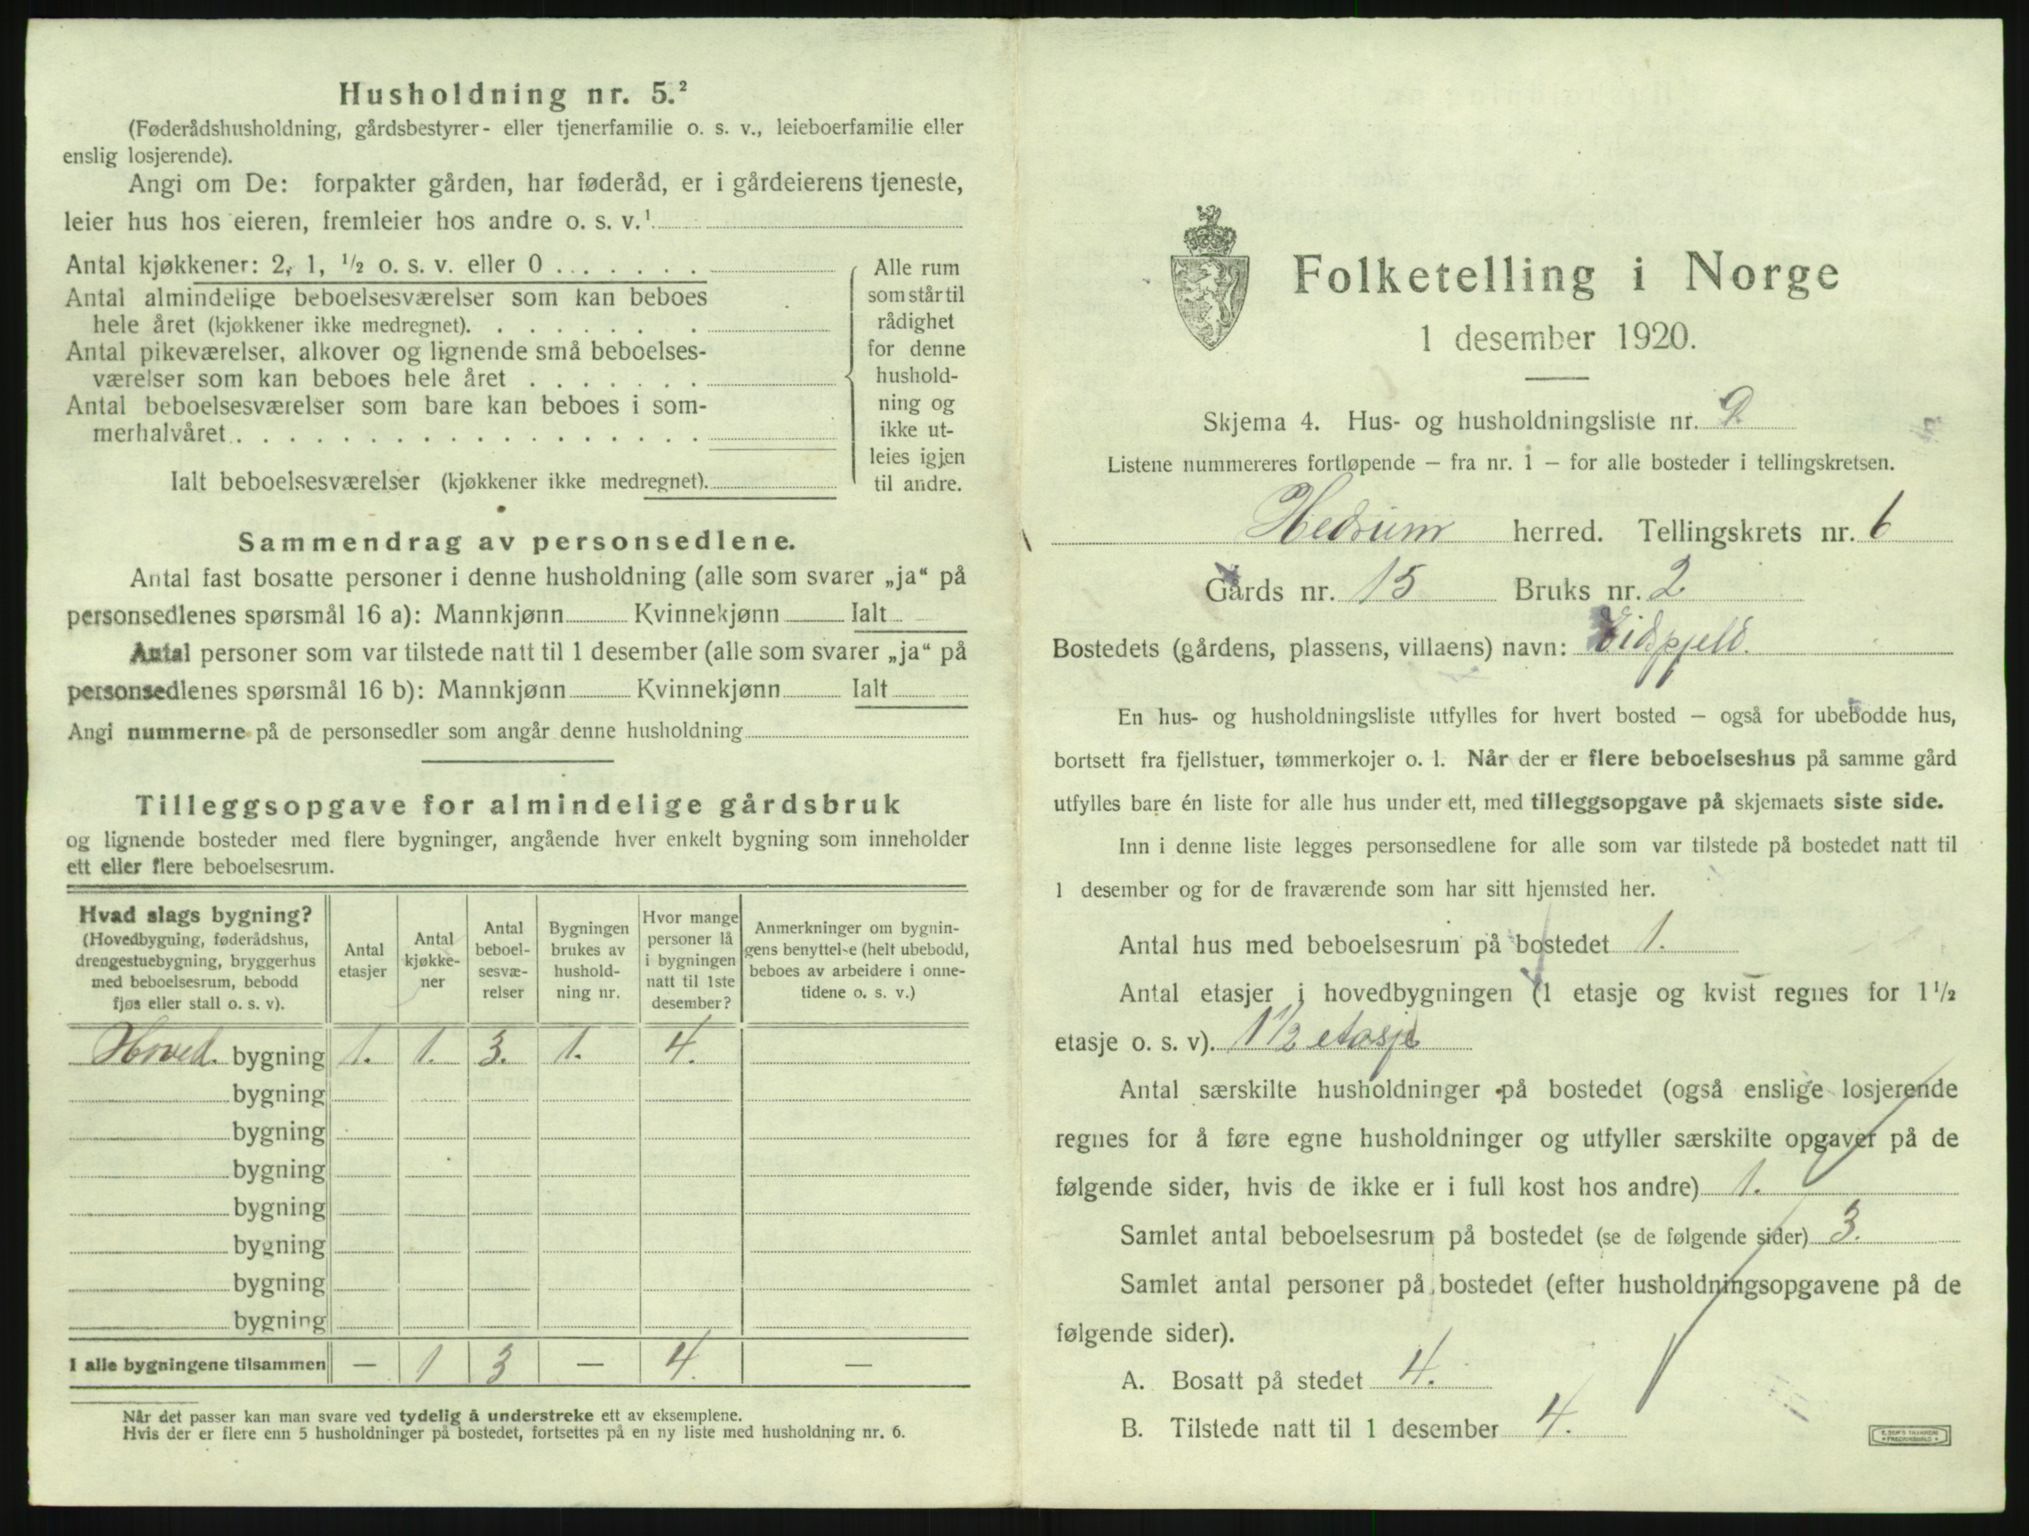 Husholdning nr. 5.²
(Føderådshusholdning, gårdsbestyrer- eller tjenerfamilie o. s. v., leieboerfamilie eller
enslig losjerende).
Angi om De: forpakter gården, har føderåd, er i gårdeierens tjeneste,
leier hus hos eieren, fremleier hos andre o. s. v.¹
Antal kjøkkener: 2, 1, ½ o. s. v. eller 0 . . . . . .
Antal almindelige beboelsesværelser som kan beboes
hele året (kjøkkener ikke medregnet). . . . . . . .
Antal pikeværelser, alkover og lignende små beboelses-
værelser som kan beboes hele året . . . . . . .
Antal beboelsesværelser som bare kan beboes i som-
merhalvåret. . . . . . . . . . . . . . . . . .
Ialt beboelsesværelser (kjøkkener ikke medregnet).
Alle rum
som står til
rådighet
for denne
hushold-
ning og
ikke ut-
leies igjen
til andre.
Sammendrag av personsedlene.
Antal fast bosatte personer i denne husholdning (alle som svarer „ja“ på
personsedlenes spørsmål 16 a): Mannkjønn Kvinnekjønn Ialt
Antal personer som var tilstede natt til 1 desember (alle som svarer „ja“ på
personsedlenes spørsmål 16 b): Mannkjønn Kvinnekjønn Ialt
Angi nummerne på de personsedler som angår denne husholdning
Tilleggsopgave for almindelige gårdsbruk
og lignende bosteder med flere bygninger, angående hver enkelt bygning som inneholder
ett eller flere beboelsesrum.
Hvad slags bygning?
(Hovedbygning, føderådshus,
drengestuebygning, bryggerhus
med beboelsesrum, bebodd
fjøs eller stall o. s. v).
Antal
etasjer
Antal
kjøkke-
ner
Antal
beboel-
sesvæ-
relser
Bygningen
brukes av
hushold-
ning nr.
Hvor mange
personer lå
i bygningen
natt til 1ste
desember?
Anmerkninger om bygnin-
gens benyttelse (helt ubebodd,
beboes av arbeidere i onne-
tidene o. s. v.)
Hoved. bygning 1. 1. 3. 1. 4.
bygning
bygning
bygning
bygning
bygning
bygning
bygning
I alle bygningene tilsammen — 1 3 — 4. —
Når det passer kan man svare ved tydelig å understreke ett av eksemplene.
Hvis der er flere enn 5 husholdninger på bostedet, fortsettes på en ny liste med husholdning nr. 6.
Folketelling i Norge
1 desember 1920.
Skjema 4. Hus- og husholdningsliste nr. 2
Listene nummereres fortløpende — fra nr. 1 — for alle bosteder i tellingskretsen.
Hedrum herred. Tellingskrets nr. 6
Gårds nr. 15 Bruks nr. 2
Bostedets (gårdens, plassens, villaens) navn: Eidsfjeld.
En hus- og husholdningsliste utfylles for hvert bosted — også for ubebodde hus,
bortsett fra fjellstuer, tømmerkojer o. l. Når der er flere beboelseshus på samme gård
utfylles bare én liste for alle hus under ett, med tilleggsopgave på skjemaets siste side.
Inn i denne liste legges personsedlene for alle som var tilstede på bostedet natt til
1 desember og for de fraværende som har sitt hjemsted her.
Antal hus med beboelsesrum på bostedet 1.
Antal etasjer i hovedbygningen (1 etasje og kvist regnes for 1½
etasje o. s. v). 1½ etasje
Antal særskilte husholdninger på bostedet (også enslige losjerende
regnes for å føre egne husholdninger og utfyller særskilte opgaver på de
følgende sider, hvis de ikke er i full kost hos andre) 1.
Samlet antal beboelsesrum på bostedet (se de følgende sider) 3.
Samlet antal personer på bostedet (efter husholdningsopgavene på de
følgende sider).
A. Bosatt på stedet 4.
B. Tilstede natt til 1 desember 4.